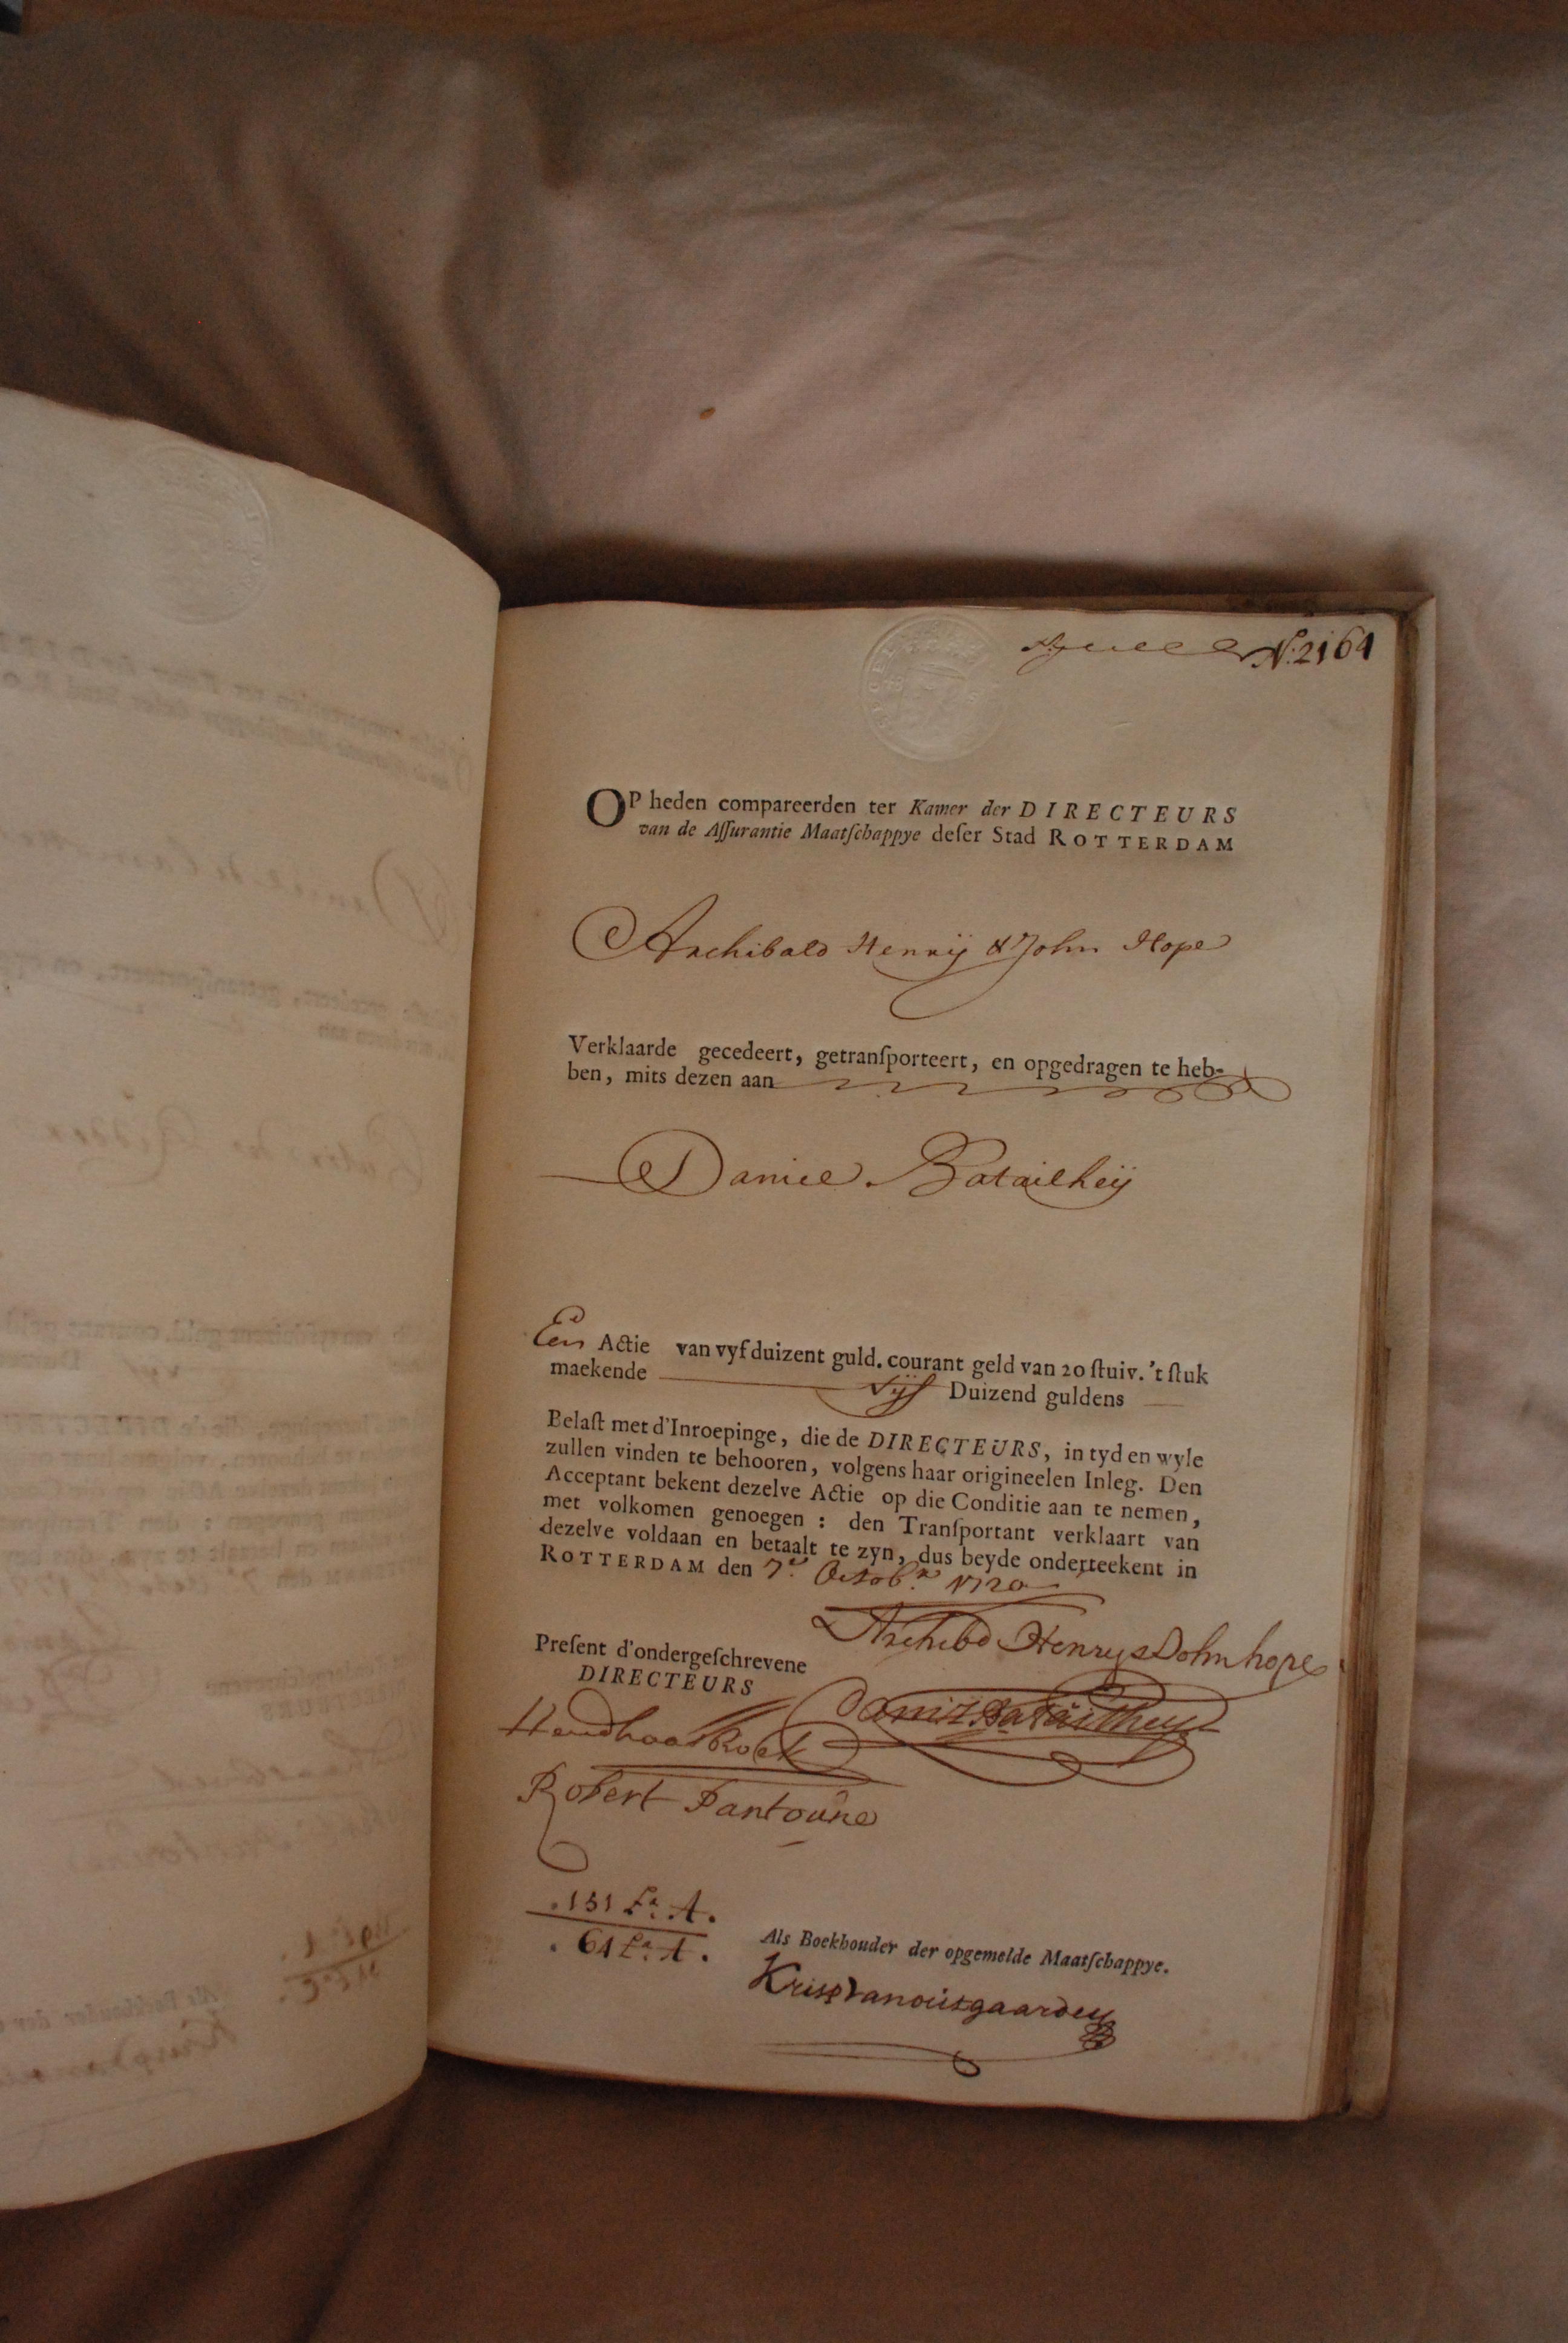 N.º 2164
OP heden compareerden ter Kamer der DIRECTEURS
van de Aſſurantie Maatſchappye deſer Stad ROTTERDAM
Archibald Henrij & John Hope
Verklaarde gecedeert, getranſporteert, en opgedragen te heb-
ben, mits dezen aan
Daniel Batailheij
Een Actie van vyf duizent guld. courant geld van 20 ſtuiv. 't ſtuk
maekende Vijf Duizend guldens
Belaſt met d'Inroepinge, die de DIRECTEURS, in tyd en wyle
zullen vinden te behooren, volgens haar origineelen Inleg. Den
Acceptant bekent dezelve Actie op die Conditie aan te nemen,
met volkomen genoegen : den Tranſportant verklaart van
dezelve voldaan en betaalt te zyn, dus beyde onderteekent in
ROTTERDAM den 7.e Octob.r 1720
Archibd Henry & John hope
Preſent d'ondergeſchrevene
DIRECTEURS
Daniel Batailheij
Robert Pantoúne
.151 Lª A.
. 61 Lª A.
Als Boekhouder der opgemelde Maatſchappye.